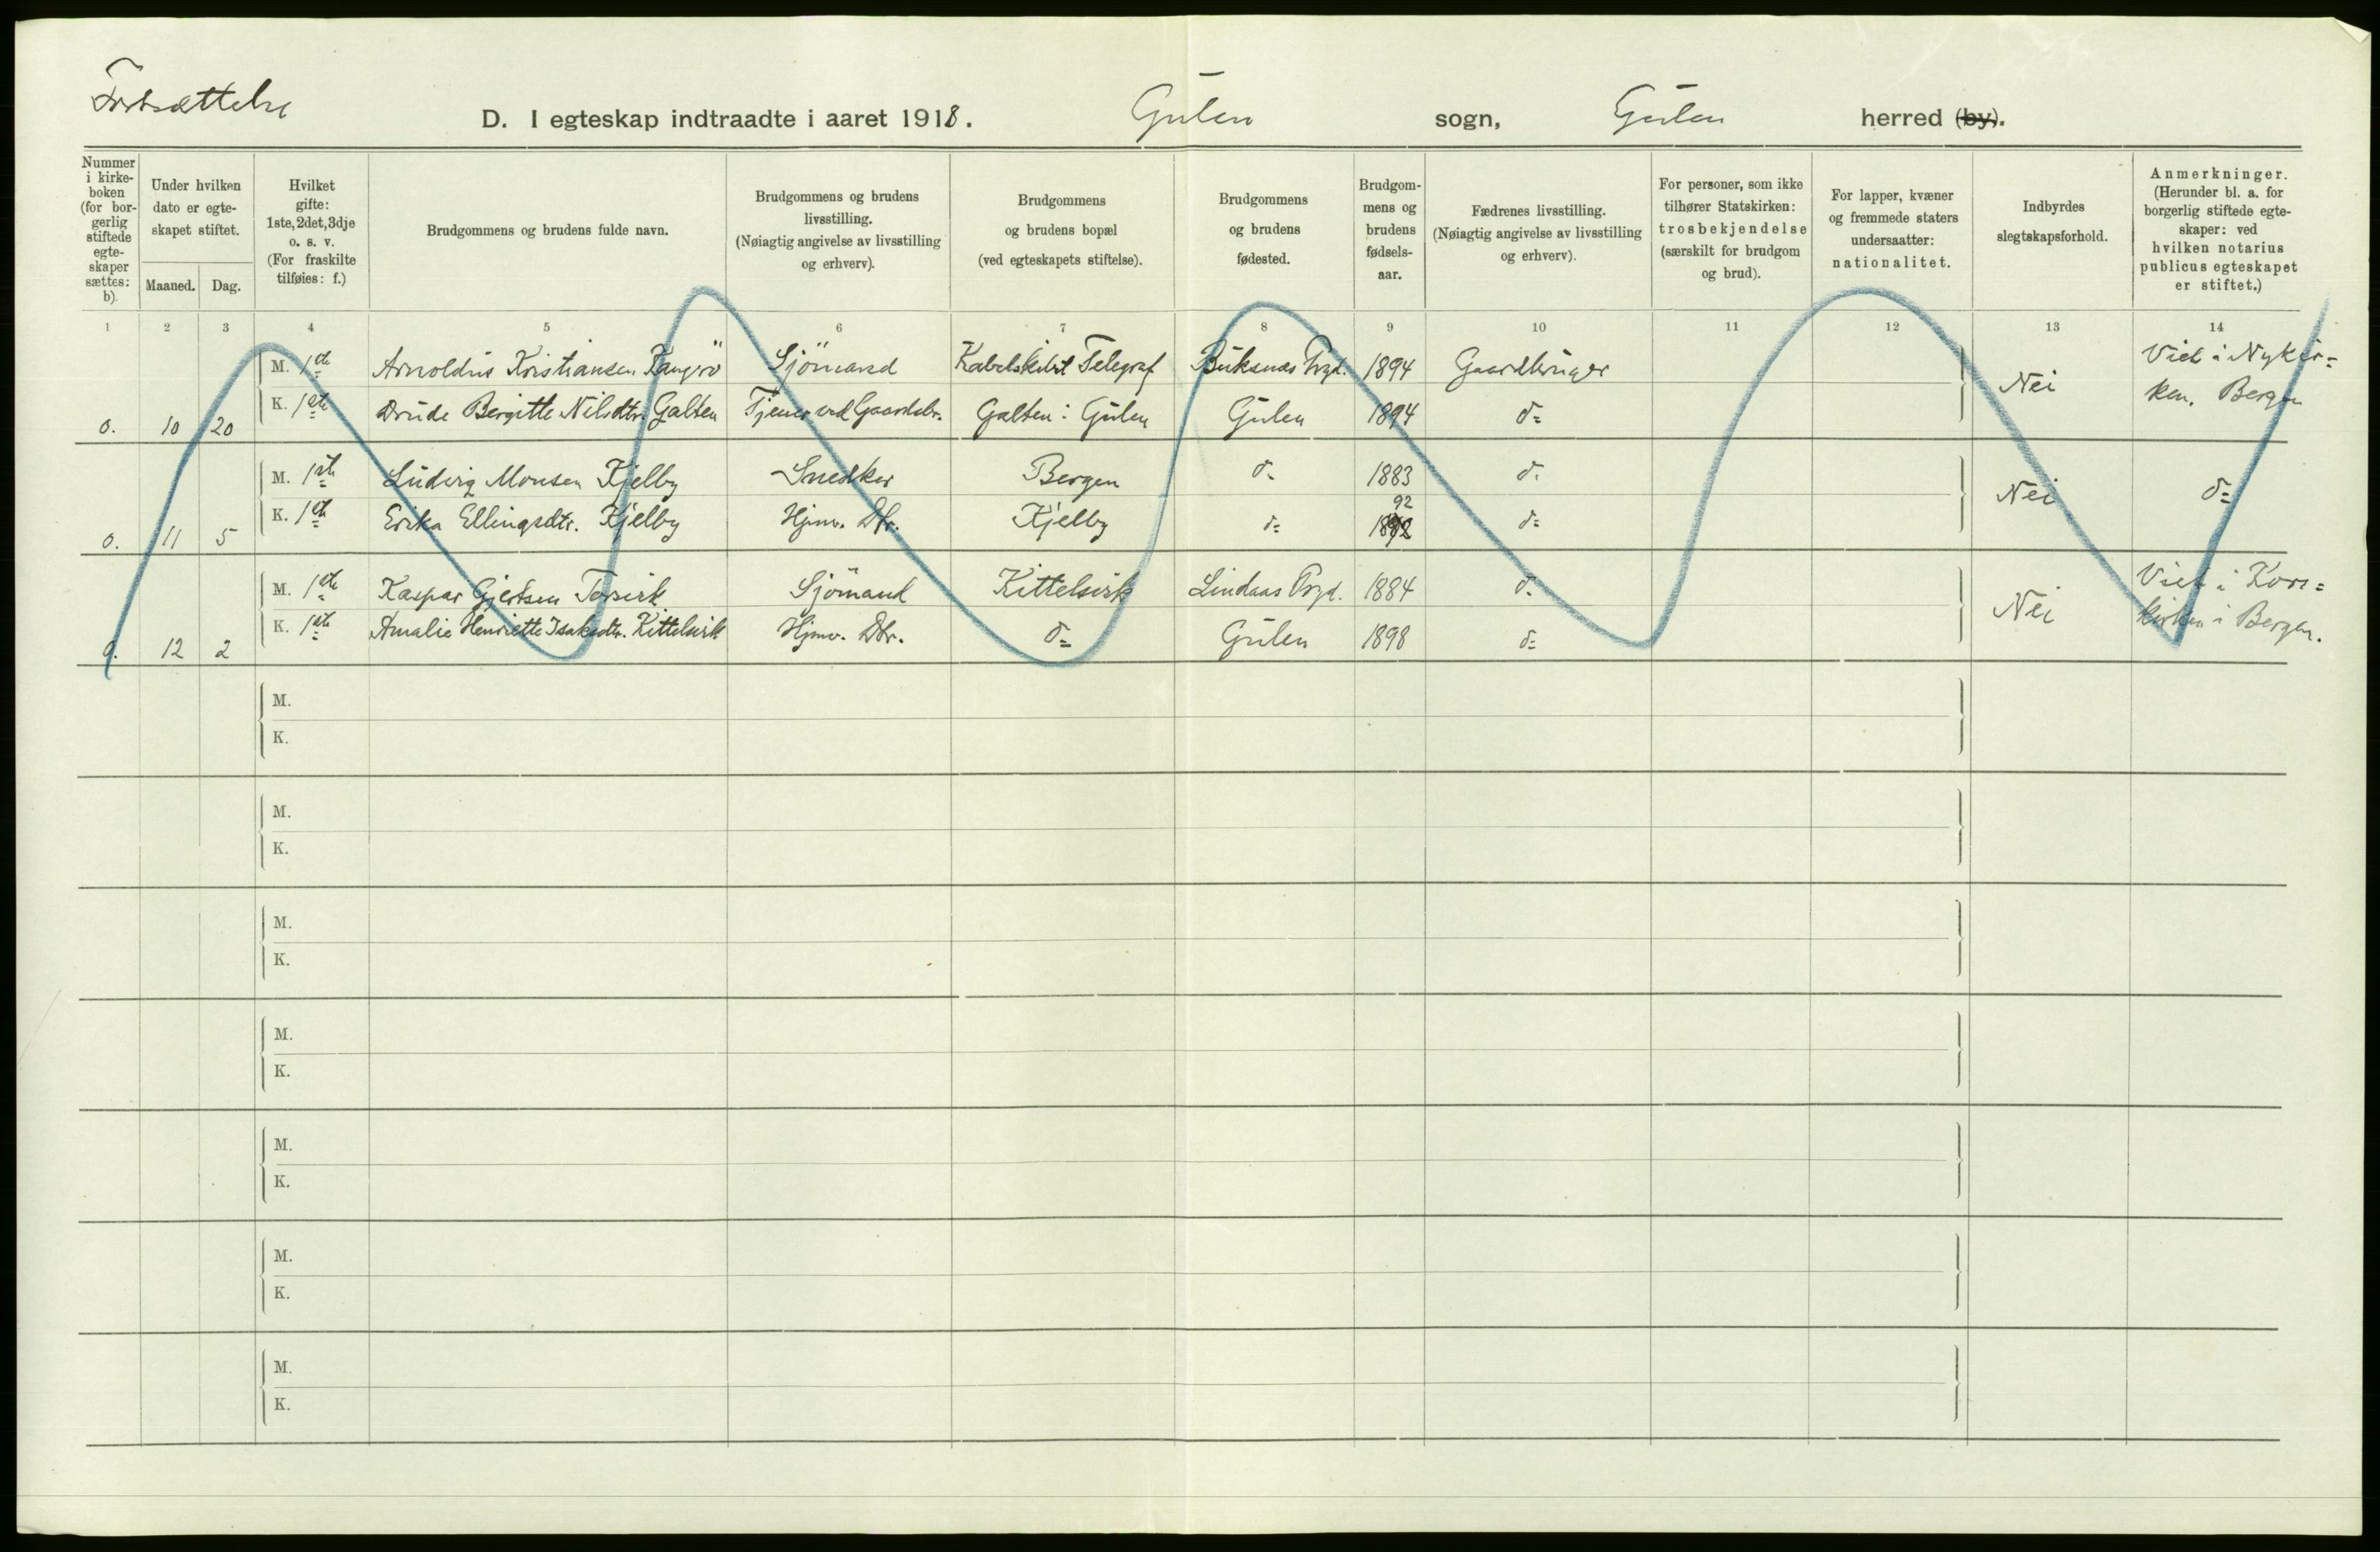 Fortsættelse
D. I egteskap indtraadte i aaret 1918. Gulen sogn, Gulen herred (by).
Nummer i kirke- boken (for bor- gerlig stiftede egte- skaper sættes: b).
Under hvilken dato er egte- skapet stiftet.
Maaned. Dag.
Hvilket gifte: 1ste, 2det, 3dje o. s. v. (For fraskilte tilføies: f.)
Brudgommens og brudens fulde navn.
Brudgommens og brudens livsstilling. (Nøiagtig angivelse av livsstilling og erhverv).
Brudgommens og brudens bopæl (ved egteskapets stiftelse).
Brudgommens og brudens fødested.
Brudgom- mens og brudens fødsels- aar.
Fædrenes livsstilling. (Nøiagtig angivelse av livsstilling og erhverv).
For personer, som ikke tilhører Statskirken: trosbekjendelse (særskilt for brudgom og brud).
For lapper, kvæner og fremmede staters undersaatter: nationalitet.
Indbyrdes slegtskapsforhold.
Anmerkninger. (Herunder bl. a. for borgerlig stiftede egte- skaper: ved hvilken notarius publicus egteskapet er stiftet.)
1 2 3 4 5 6 7 8 9 10 11 12 13 14
M. 1ste Arnoldus Kristiansen Sjömand Telegraf Buksnæs Prgd. 1894 Gaardbruger Nei Viet i Nykir=
0. 10 20 K. 1ste Drude Bergitte Nilsdtr. Galten Tjener ved Gaardsbr. Galten i Gulen Gulen 1894 do= ken, Bergen
M. 1ste Ludvig Monsen Kjelby Snedker Bergen do= 1883 do= Nei do=
92
0. 11 5 K. 1ste Erika Ellingsdtr. Kjelby Hjmv. Dtr. Kjelby do= 1892 do=
M. 1ste Kaspar Gjertsen Sjömand Kittelsvik Lindaas Prgd. 1884 do= Nei Viet i Kors=
0. 12 2 K. 1ste Amalie Henriette Isaksdtr. Kittelsvik Hjmv. Dtr. do= Gulen 1898 do= kirken i Bergen.
M.
K.
M.
K.
M.
K.
M.
K.
M.
K.
M.
K.
M.
K.